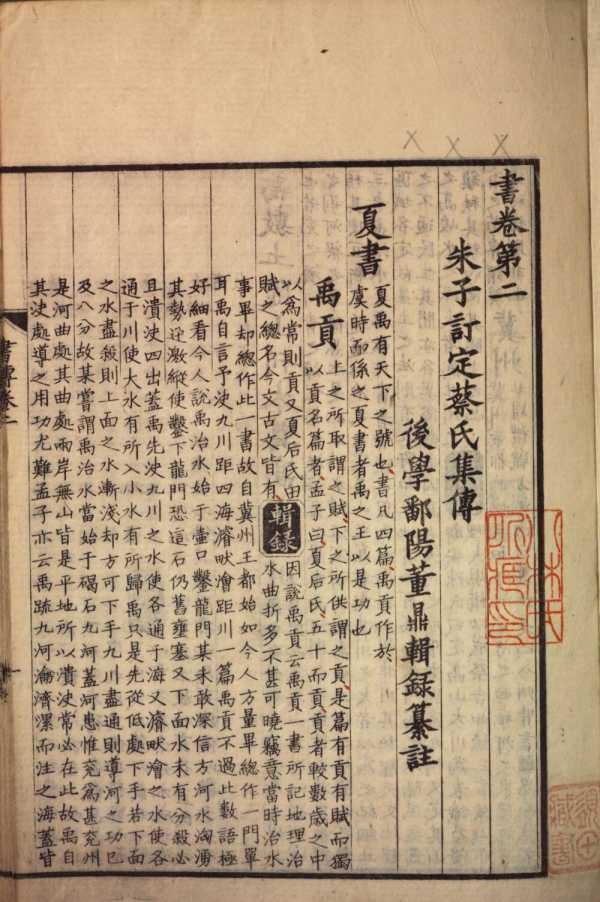 書卷第二
朱子訂定蔡氏集傳
後學鄱陽董鼎輯錄纂註
夏書
夏禹有天下之號也書凡四篇禹貢作於
虞時而係之夏書者禹之王以是功也
禹貢
上之所取謂之賦下之所供謂之貢是篇有貢有賦而獨
以貢名篇者孟子曰夏后氏五十而貢貢者較數歲之中
以為常則貢又夏后氏田
賦之總名今文古文皆有
輯錄
因說禹貢云禹貢一書所記地理治
水曲折多不甚可曉竊意當時治水
事畢却總作此一書故自冀州王都始如今人方量畢總作一門單
耳禹自言予決九川距四海濬畎澮距川一篇禹貢不過此數語極
好細看今人說禹治水始于壺口鑿龍門某未敢深信方河水洶湧
其勢迅激縱使鑿下龍門恐這石仍舊壅塞又下面水未有分殺必
且潰決四出蓋禹先決九川之水使各通于海又濬畎澮之水使各
通于川使大水有所入小水有所歸禹只是先從低處下手若下面
之水盡殺則上面之水漸淺却方可下手九川盡通則導河之功已
及八分故某嘗謂禹治水當始于碣石九河蓋河患惟兗為甚兗州
是河曲處其曲處兩岸無山皆是平地所以潰決常必在此故禹自
其決處導之用功尤難孟子亦云禹疏九河瀹濟漯而注之海蓋皆